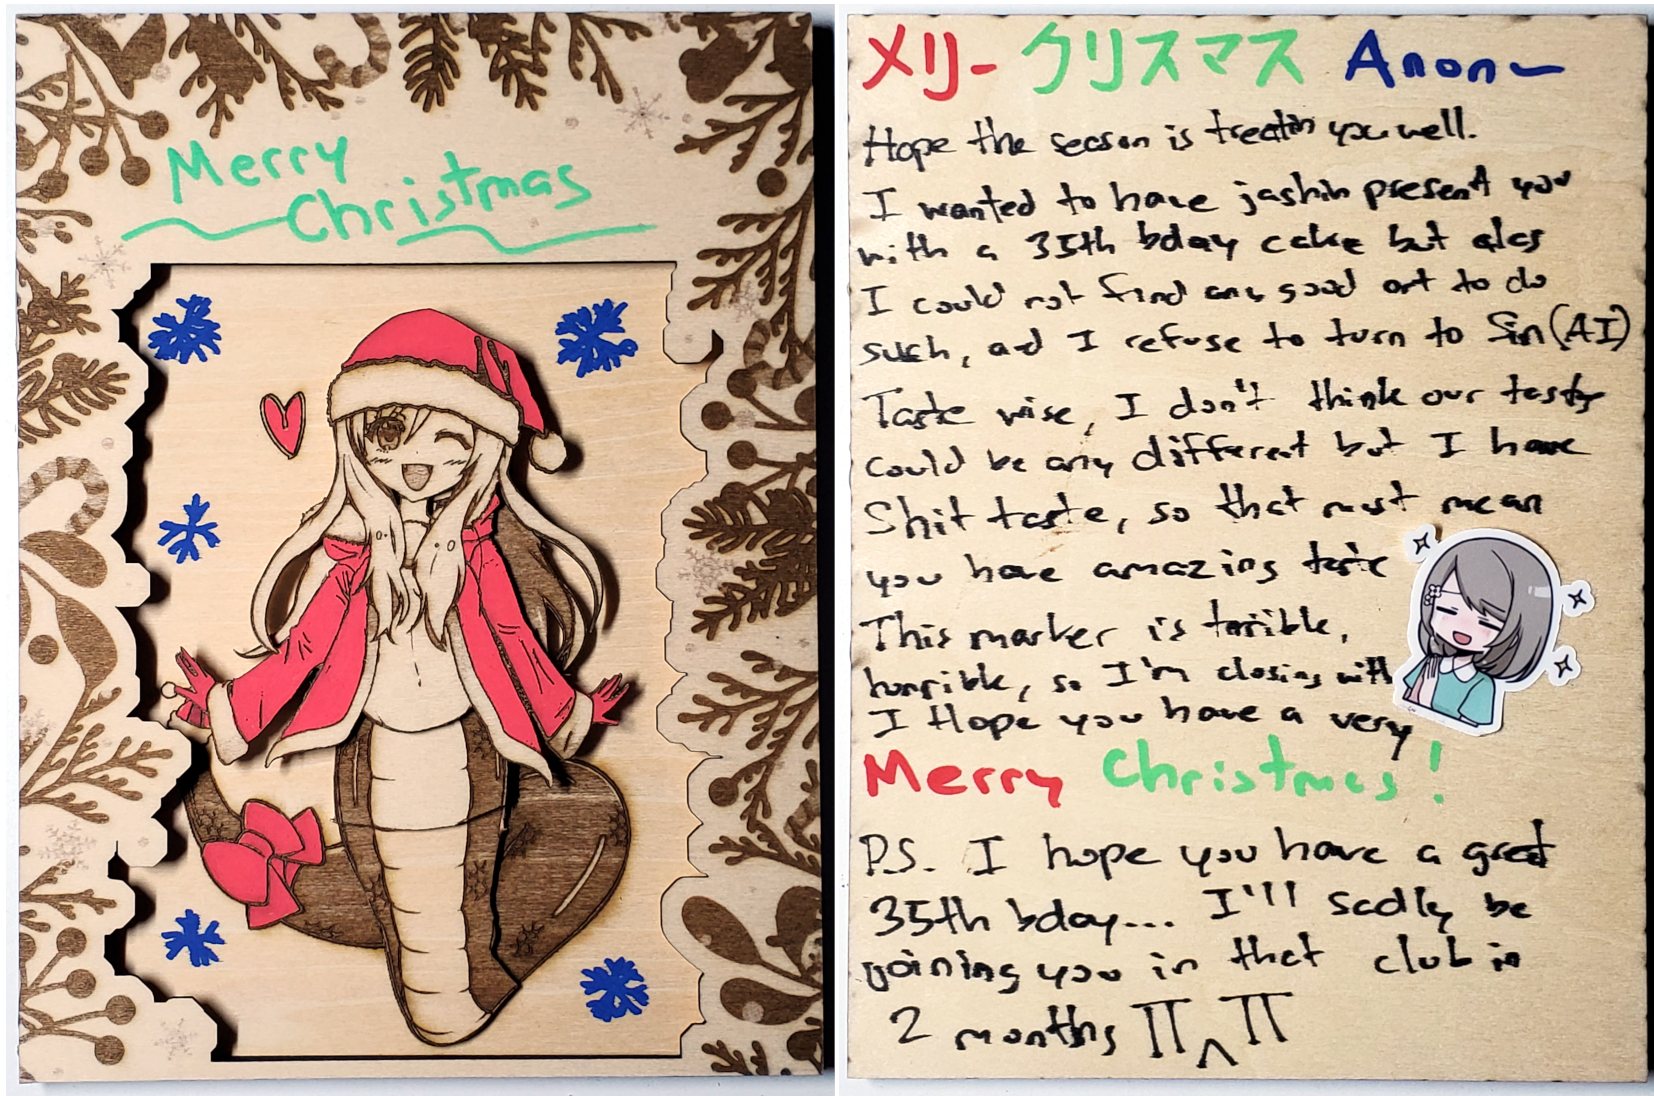 Merry
Christmas
メリークリスマス Anon~
Hope the season is treatin you well.
I wanted to have jashin present you
with a 35th bday cake but alas
I could not find any good art to do
such, and I refuse to turn to Sin (AI)
Taste wise, I don't think our tastes
could be any different but I have
Shit taste, so that must mean
you have amazing taste
This marker is terrible,
horrible, so I'm closing with
I Hope you have a very
Merry Christmas!
P.S. I hope you have a great
35th bday... I'll sadly be
joining you in that club in
2 months TT^TT